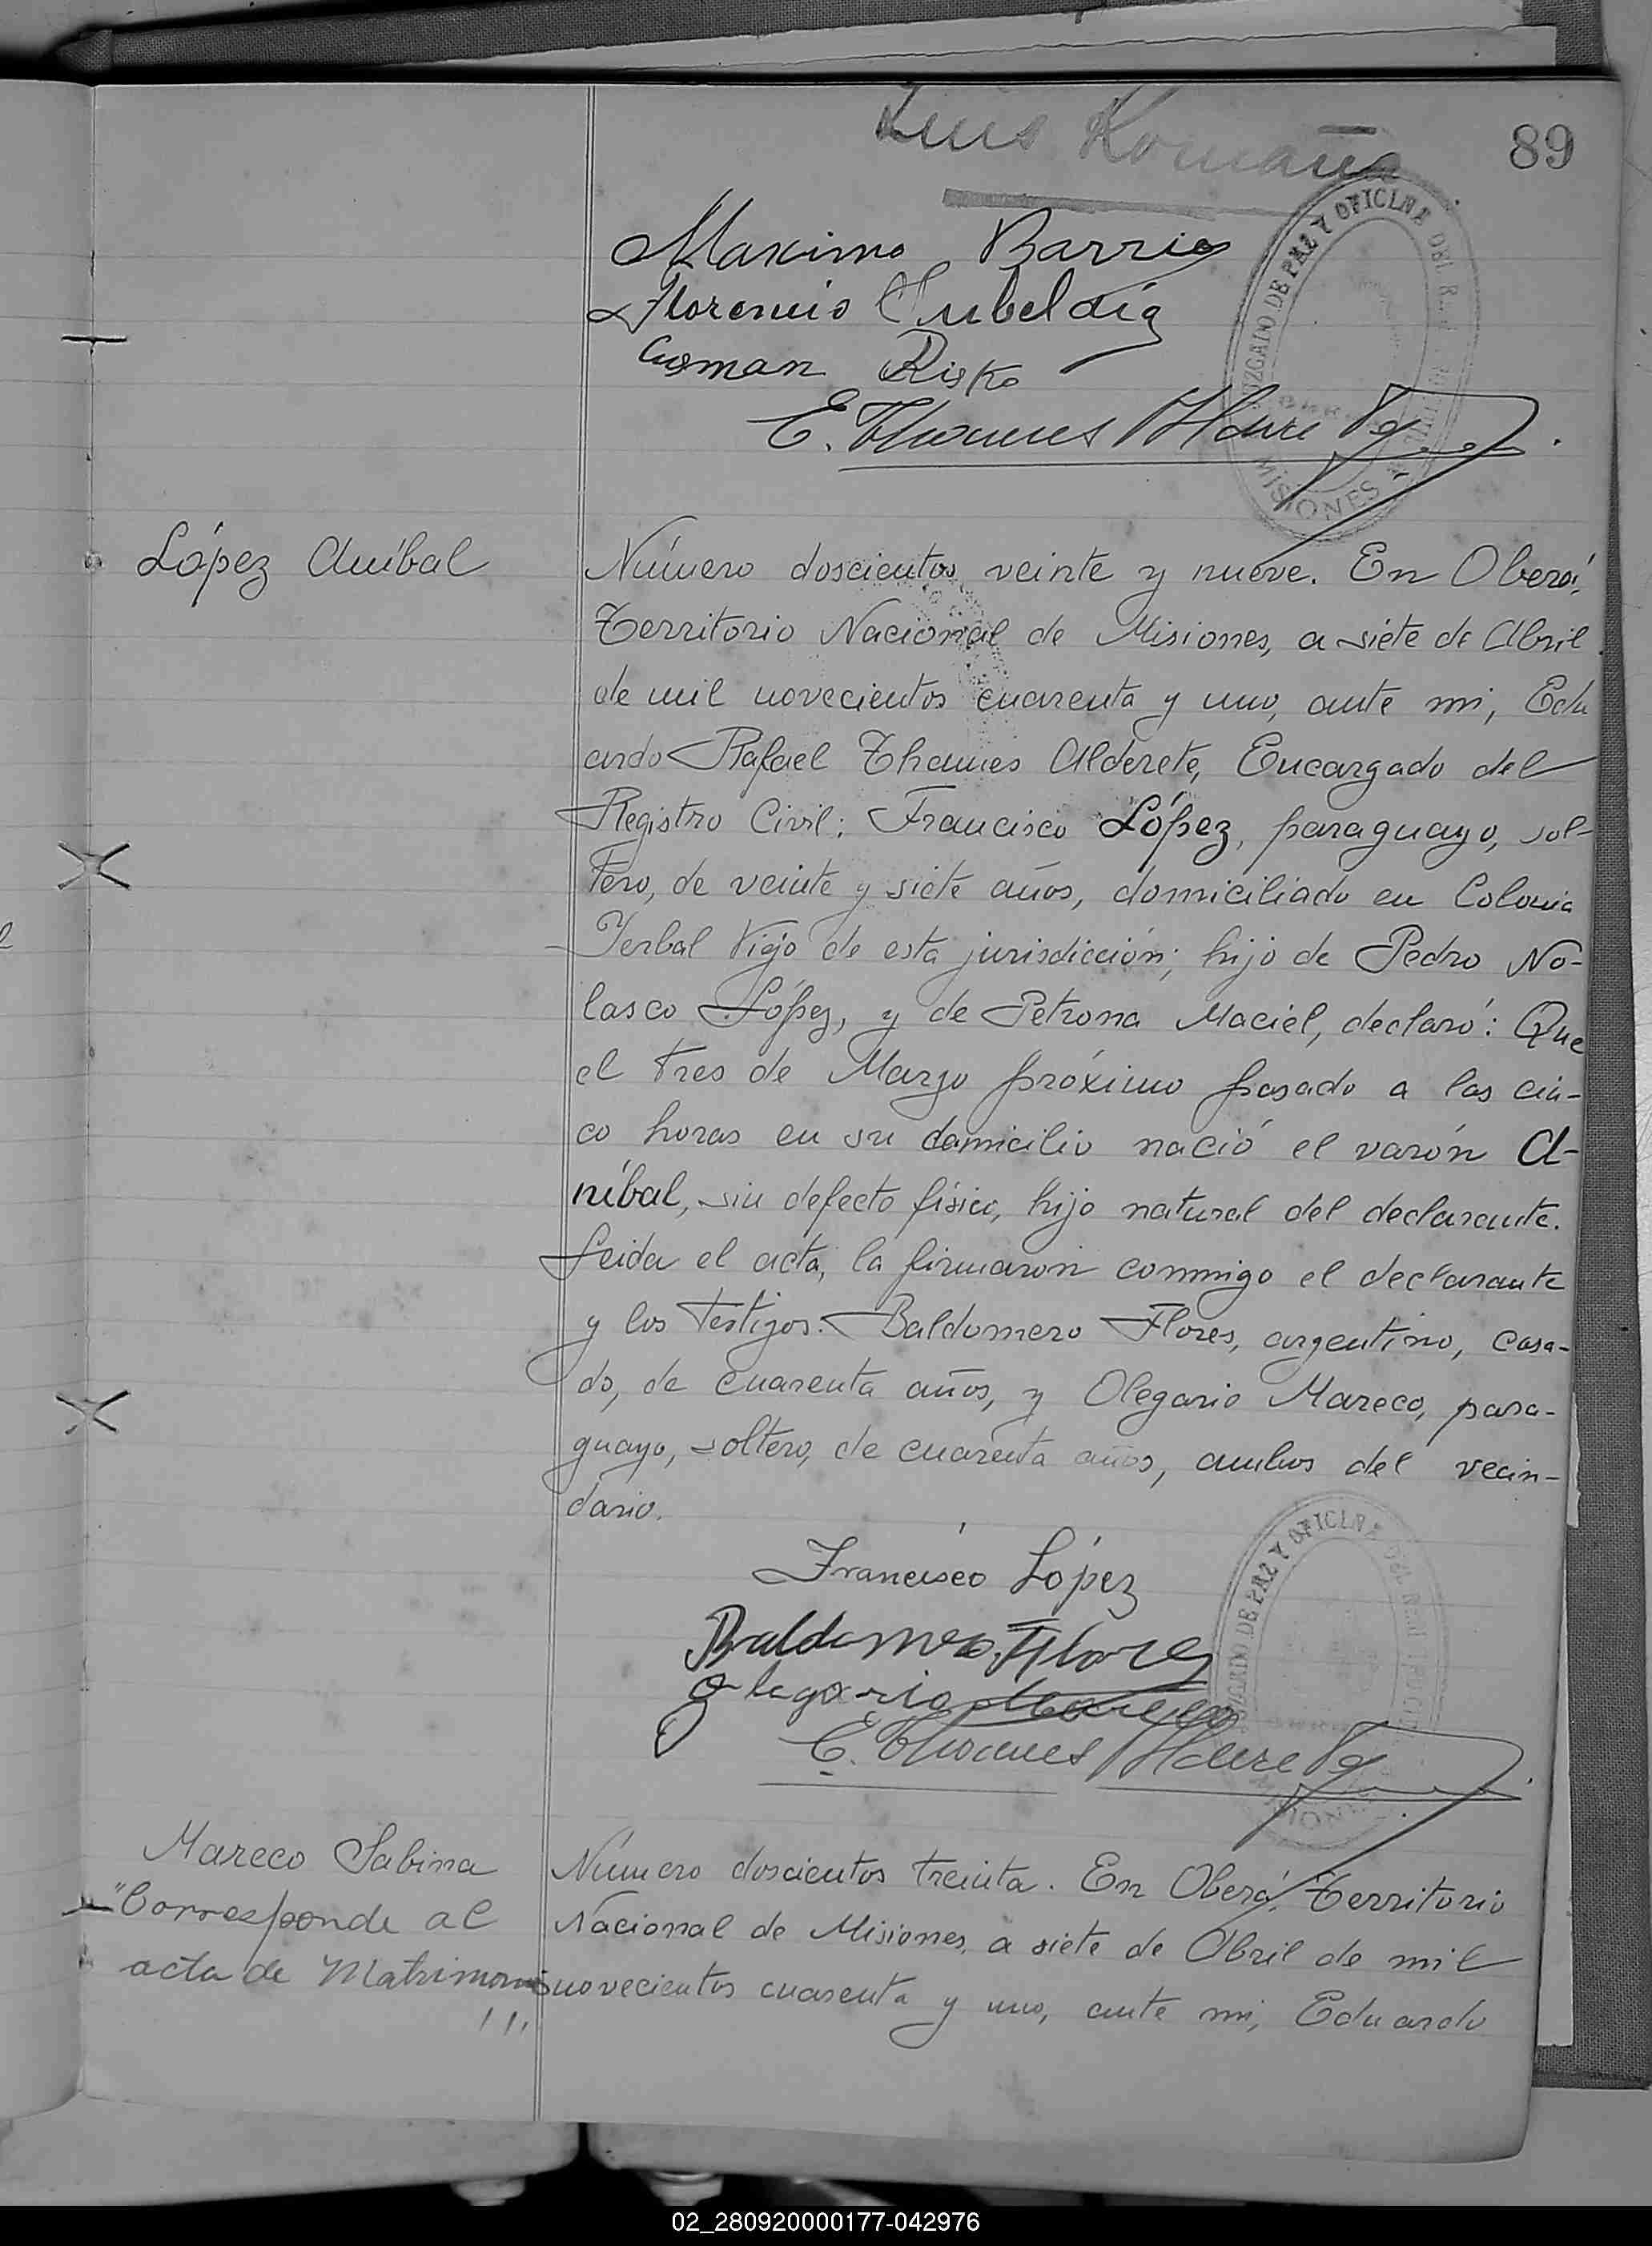 89
Luis Romaña
Maximo Barrios
Florencio Cubeldia
Roman Risko
E. Thames Alderete
JUZGADO DE PAZ Y OFICINA DEL
MISIONES
López Aníbal
Número doscientos veinte y nueve. En Oberá,
Territorio Nacional de Misiones, a siete de Abril
de mil novecientos cuarenta y uno, ante mi, Edu
ardo Rafael Thames Alderete, Encargado del
Registro Civil: Francisco López, paraguayo, sol-
tero, de veinte y siete años, domiciliado en Colonia
Yerbal Viejo de esta jurisdicción; hijo de Pedro No-
lasco López, y de Petrona Maciel, declaró: Que
el tres de Marzo próximo pasado a las cin-
co horas en su domicilio nació el varón A-
níbal, sin defecto físico, hijo natural del declarante.
Leida el acta, la firmaron conmigo el declarante
y los testigos: Baldomero Flores, argentino, casa-
do, de cuarenta años, y Olegario Mareco, para-
guayo, soltero, de cuarenta años, ambos del vecin-
dario.
Francisco López
Baldomero Flores
Olegario Mareco
E. Thames Alderete
JUZGADO DE PAZ Y OFICINA DEL
Mareco Sabina
"Corresponde al
acta de Matrimonio
111
Número doscientos treinta. En Oberá, Territorio
Nacional de Misiones, a siete de Abril de mil
novecientos cuarenta y uno, ante mi, Eduardo
02_280920000177-042976